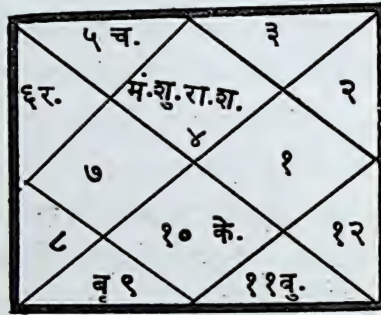 ५ च.
३
६र.
मं.शु.रा.श.
२
४
७
१
८
१० के.
१२
बृ ९
११वु.